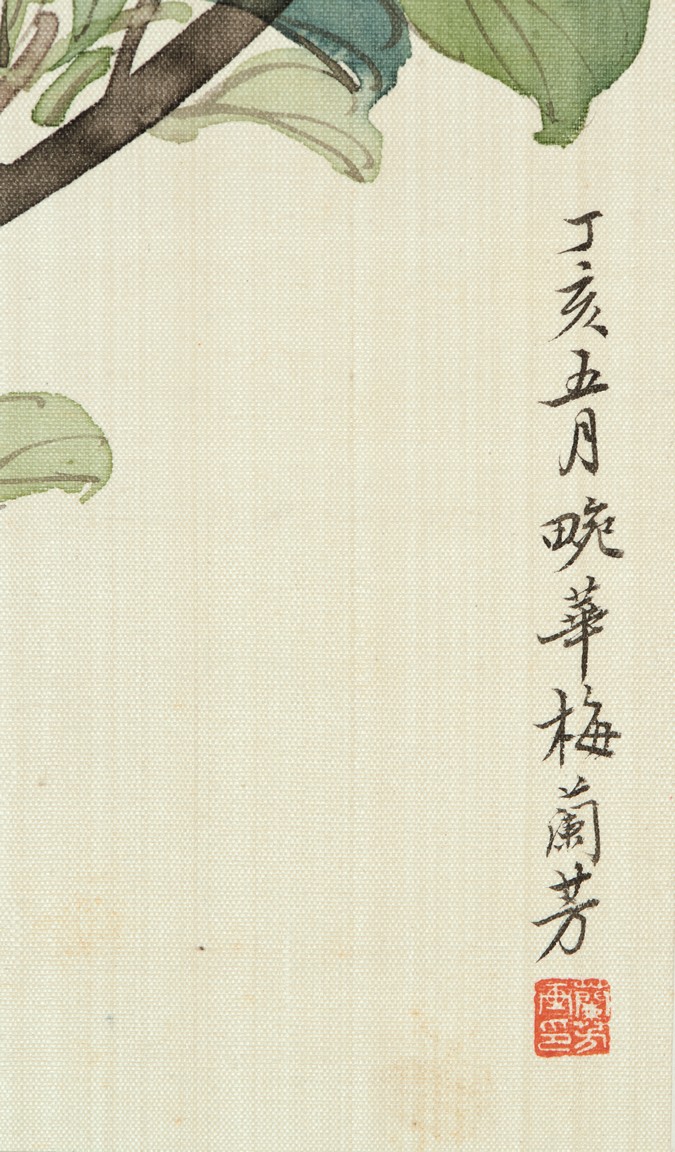 丁亥五月畹華梅蘭芳
蘭芳畫印